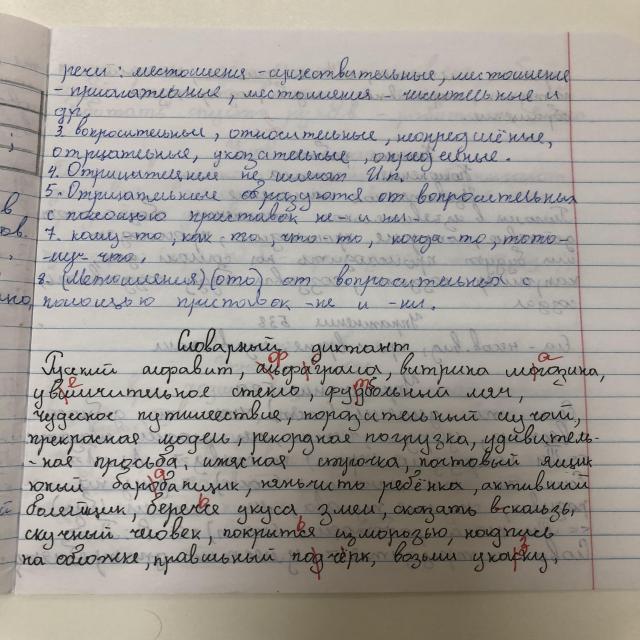 речи: местоимения - существительные, местоимения
- прилагательные, местоимения - числительные и
др.
3. вопросительные, относительные, неопределённые,
отрицательные, указательные, определённые.
4. Отрицательные не имеют И.п.
5. Отрицательные образуются от вопросительных
с помощью приставок не- и ни-.
7. кому-то, как-то, что-то, когда-то, тото-
-му что.
8. (Местоимения) (ото) от вопросительных с
помощью приставок -не и -ни.
Упражнение 538
Словарный диктант
Русский алфавит, абзац
витрина магазина,
увеличительное стекло, футбольный мяч,
чудесное путешествие, поразительный случай,
прекрасная модель, рекордная погрузка, удивитель-
-ная просьба, ужасная строчка, почтовый ящик
юный барабанщик, нянчить ребёнка, активный
болельщик, береч укуса змеи, сказать вскользь,
скучный человек, покрыться изморозью, надпись
на обложке, правильный подчерк, возьми указку,